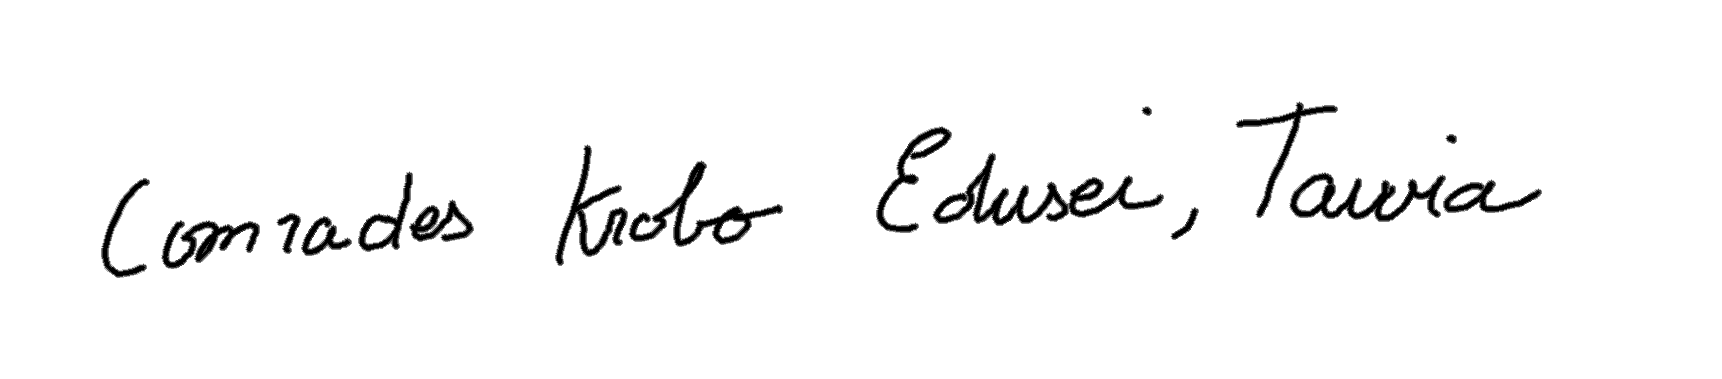 Comrades Krobo Edusei, Tawia